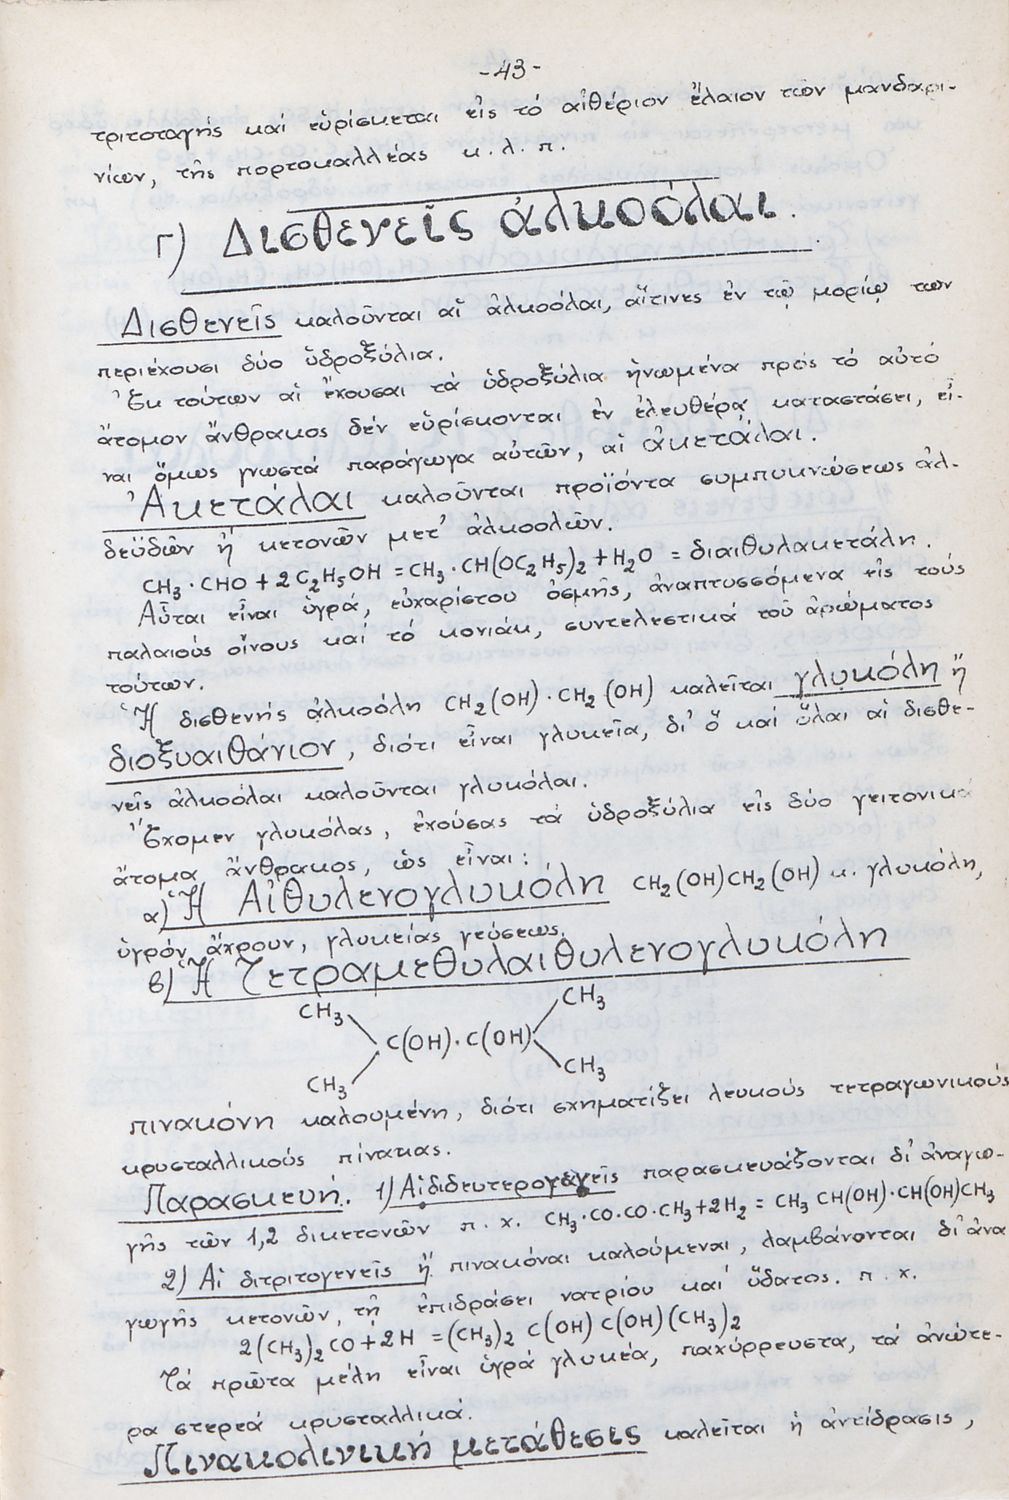 -43-
τριτοταγής καί εὑρίσκεται εἰς τό αἰθέριον ἔλαιον τῶν μανδαρι-
νίων, τῆς πορτοκαλλέας κ.λ.π.
Γ) Δισθενεῖς ἀλκοόλαι.
Δισθενεῖς καλοῦνται αἵ ἀλκοόλαι, αἵτινες ἐν τῷ μορίῳ των
περιέχουσι δύο ὑδροξύλια.
Ἐκ τούτων αἱ ἔχουσαι τά ὑδροξύλια ἡνωμένα πρός τό αὐτό
ἄτομον ἄνθρακος δέν εὑρίσκονται ἐν ἐλευθέρᾳ καταστάσει, εἶ-
ναι ὅμως γνωστά παράγωγα αὐτῶν, αἱ ἀκετάλαι.
Ἀκετάλαι καλοῦνται προϊόντα συμπυκνώσεως ἀλ-
δεϋδῶν ἤ κετονῶν μετ' ἀλκοολῶν.
CH3·CHO+2C2H5OH=CH3·CH(OC2H5)2+H2O =διαιθυλακετάλη.
Αὗται εἶναι ὑγρά, εὐχαρίστου ὀσμῆς, ἀναπτυσσόμενα εἰς τούς
παλαιούς οἴνους καί τό κονιάκ, συντελεστικά τοῦ ἀρώματος
τούτων.
Ἡ δισθενής ἀλκοόλη CH2(OH)·CH2(OH) καλεῖται γλυκόλη ἤ
διοξυαιθάνιον, διότι εἶναι γλυκεῖα, δι' ὅ καί ὅλαι αἱ δισθε-
νεῖς ἀλκοόλαι καλοῦνται γλυκόλαι.
Ἔχομεν γλυκόλας, ἐχούσας τά ὑδροξύλια εἰς δύο γειτονικά
ἄτομα ἄνθρακος, ὡς εἶναι:
α) Ἡ Αἰθυλενογλυκόλη CH2(OH)CH2(OH) κ. γλυκόλη,
ὑγρόν ἄχρουν, γλυκείας γεύσεως.
β) Ἡ Τετραμεθυλαιθυλενογλυκόλη
CH3 CH3
C(OH)·C(OH)
CH3 CH3
πινακόνη καλουμένη, διότι σχηματίζει λευκούς τετραγωνικούς
κρυσταλλικούς πίνακας.
Παρασκευή. 1) Αἱ διδευτερογεγεῖς παρασκευάζονται δι' ἀναγω-
γῆς τῶν 1,2 δικετονῶν π.χ. CH3·CO·CO·CH3+2H2 = CH3 CH(OH)·CH(OH)CH3
2) Αἱ διτριτογενεῖς ἤ πινακόναι καλούμεναι, λαμβάνονται δι' ἀνα
γωγῆς κετονῶν, τῇ ἐπιδράσει νατρίου καί ὕδατος. π.χ.
2(CH3)2CO+2H =(CH3)2 C(OH) C(OH)(CH3)2
Τά πρῶτα μέλη εἶναι ὑγρά γλυκέα, παχύρρευστα, τά ἀνώτε-
ρα στερεά κρυσταλλικά.
Πινακολινική μετάθεσις καλεῖται ἡ ἀντίδρασις,